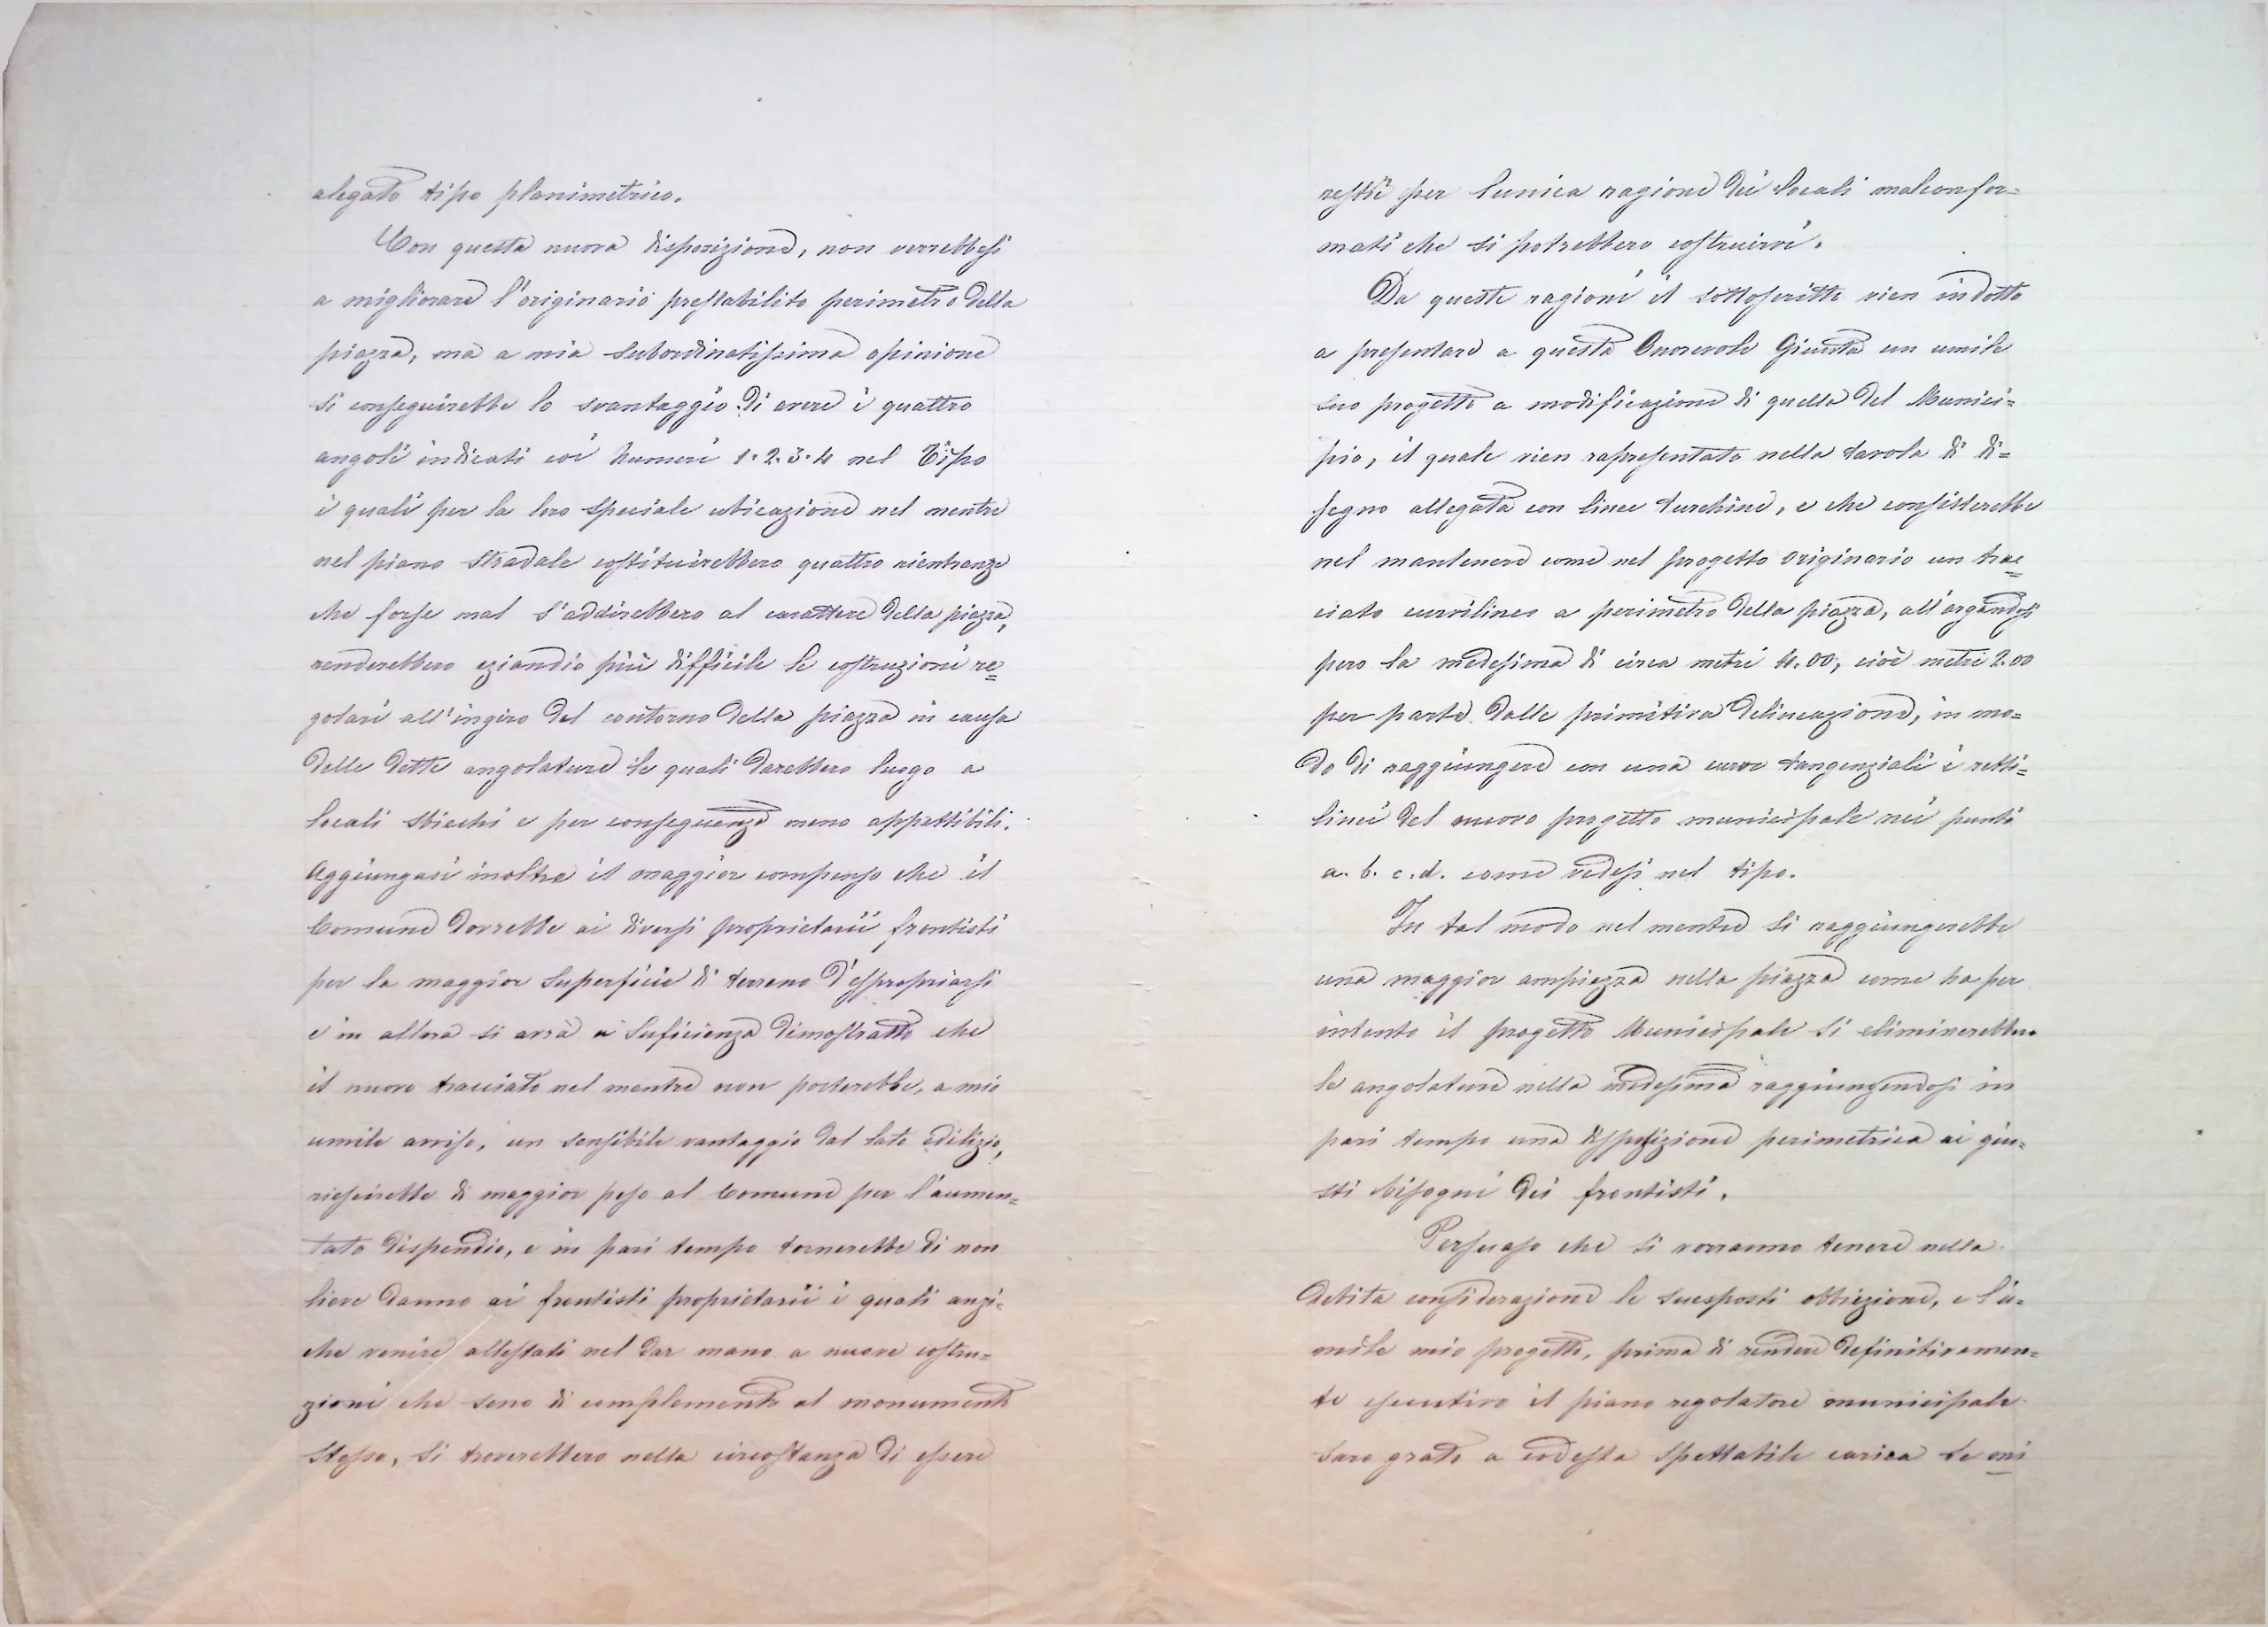 alegato tipo planimetrico.
Con questa nuova disposizione, non verrebbesi
a migliorare l'originario prestabilito perimetro della
piazza, ma a mia subordinatissima opinione
si conseguirebbe lo svantaggio di avere i quattro
angoli indicati coi Numeri 1. 2. 3. 4 nel Tipo
i quali per la loro speciale ubicazione nel mentre
nel piano stradale costituirebbero quattro rientranze
che forse mal s'addirebbero al carattere della piazza,
renderebbero eziandio più difficile le costruzioni re=
golari all'ingiro del contorno della piazza in causa
delle dette angolature le quali darebbero luogo a
locali sbiechi e per conseguenza meno appettibili.
Aggiungasi inoltre il maggior compenso che il
Comune dovrebbe ai diversi proprietarii frontisti
per la maggior superficie di terreno d'espropriarsi
e in allora si avrà a suficienza dimostratto che
il nuovo tracciato nel mentre non porterebbe, a mio
umile avviso, un sensibile vantaggio dal lato edilizio,
riescirebbe di maggior peso al Comune per l'aumen=
tato dispendio, e in pari tempo tornerebbe di non
lieve danno ai frontisti proprietarii i quali anzi=
che venire allestati nel dar mano a nuove costru=
zioni che sono di complemento al monumento
stesso, si troverebbero nella circostanza di essere
restii per l'unica ragione dei locali malconfor=
mati che si potrebbero costruirvi.
Da queste ragioni il sottoscritto vien indotto
a presentare a questa Onorevole Giunta un umile
suo progetto a modificazione di quello del Munici=
pio, il quale vien rapresentato nella tavola di di=
segno allegata con linee turchine, e che consisterebbe
nel mantenere come nel progetto originario un trac=
ciato curvilineo a perimetro della piazza, all'argandosi
pero la medesima di circa metri 4.00, cioè metri 2.00
per parte dalle primitiva delineazione, in mo=
do di raggiungere con una curve tangenziali i retti=
linei del nuovo progetto municipale nei punti
a. b. c. d. come vedesi nel tipo.
In tal modo nel mentre si raggiungerebbe
una maggior ampiezza nella piazza come ha per
intento il progetto Municipale si eliminerebbero
le angolature nella medesima raggiungendosi in
pari tempo una disposizione perimetrica ai giu=
sti bisogni dei frontisti.
Persuaso che si vorranno tenere nella
debita considerazione le suesposti obbiezione, e l'u=
mile mio progetto, prima di rendere definitivamen=
te esecutivo il piano regolatore municipale
saro grato a codesta spettabile carica se mi